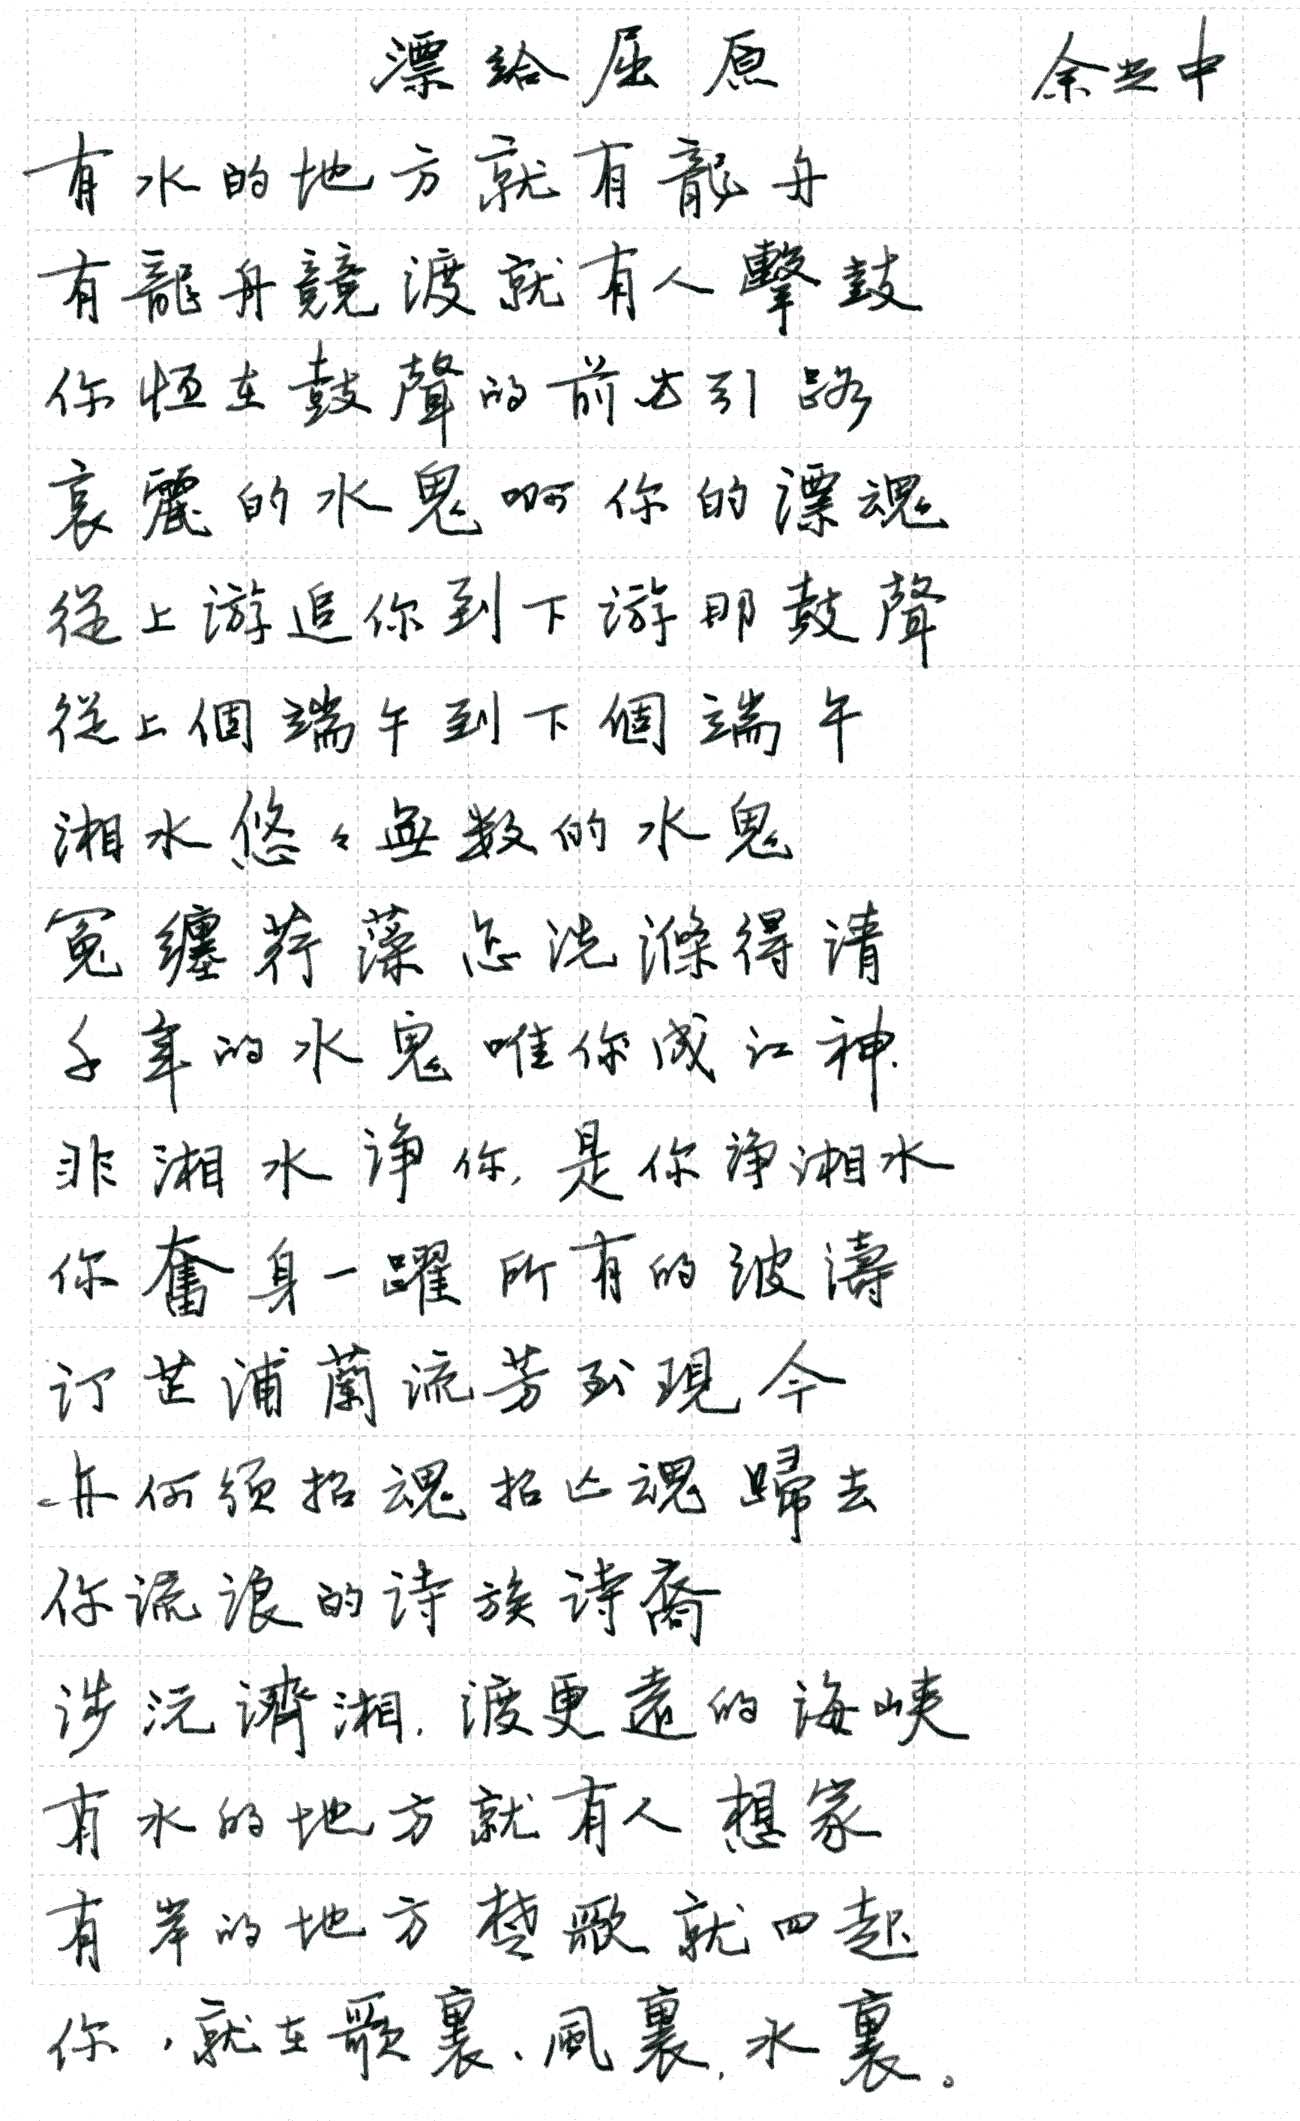 漂給屈原 余光中
有水的地方就有龍舟
有龍舟競渡就有人擊鼓
你恆在鼓聲的前方引路
哀麗的水鬼啊你的漂魂
從上游追你到下游那鼓聲
從上個端午到下個端午
湘水悠々無数的水鬼
冤纏荇藻怎洗滌得清
千年的水鬼唯你成江神.
非湘水净你,是你净湘水
你奮身一躍所有的波濤
汀芷浦蘭流芳到現今
舟何須招魂招亡魂歸去
你流浪的诗族诗裔
涉沅濟湘.渡更遠的海峽
有水的地方就有人想家
有岸的地方楚歌就四起
你,就在歌裏、風裏,水裏。